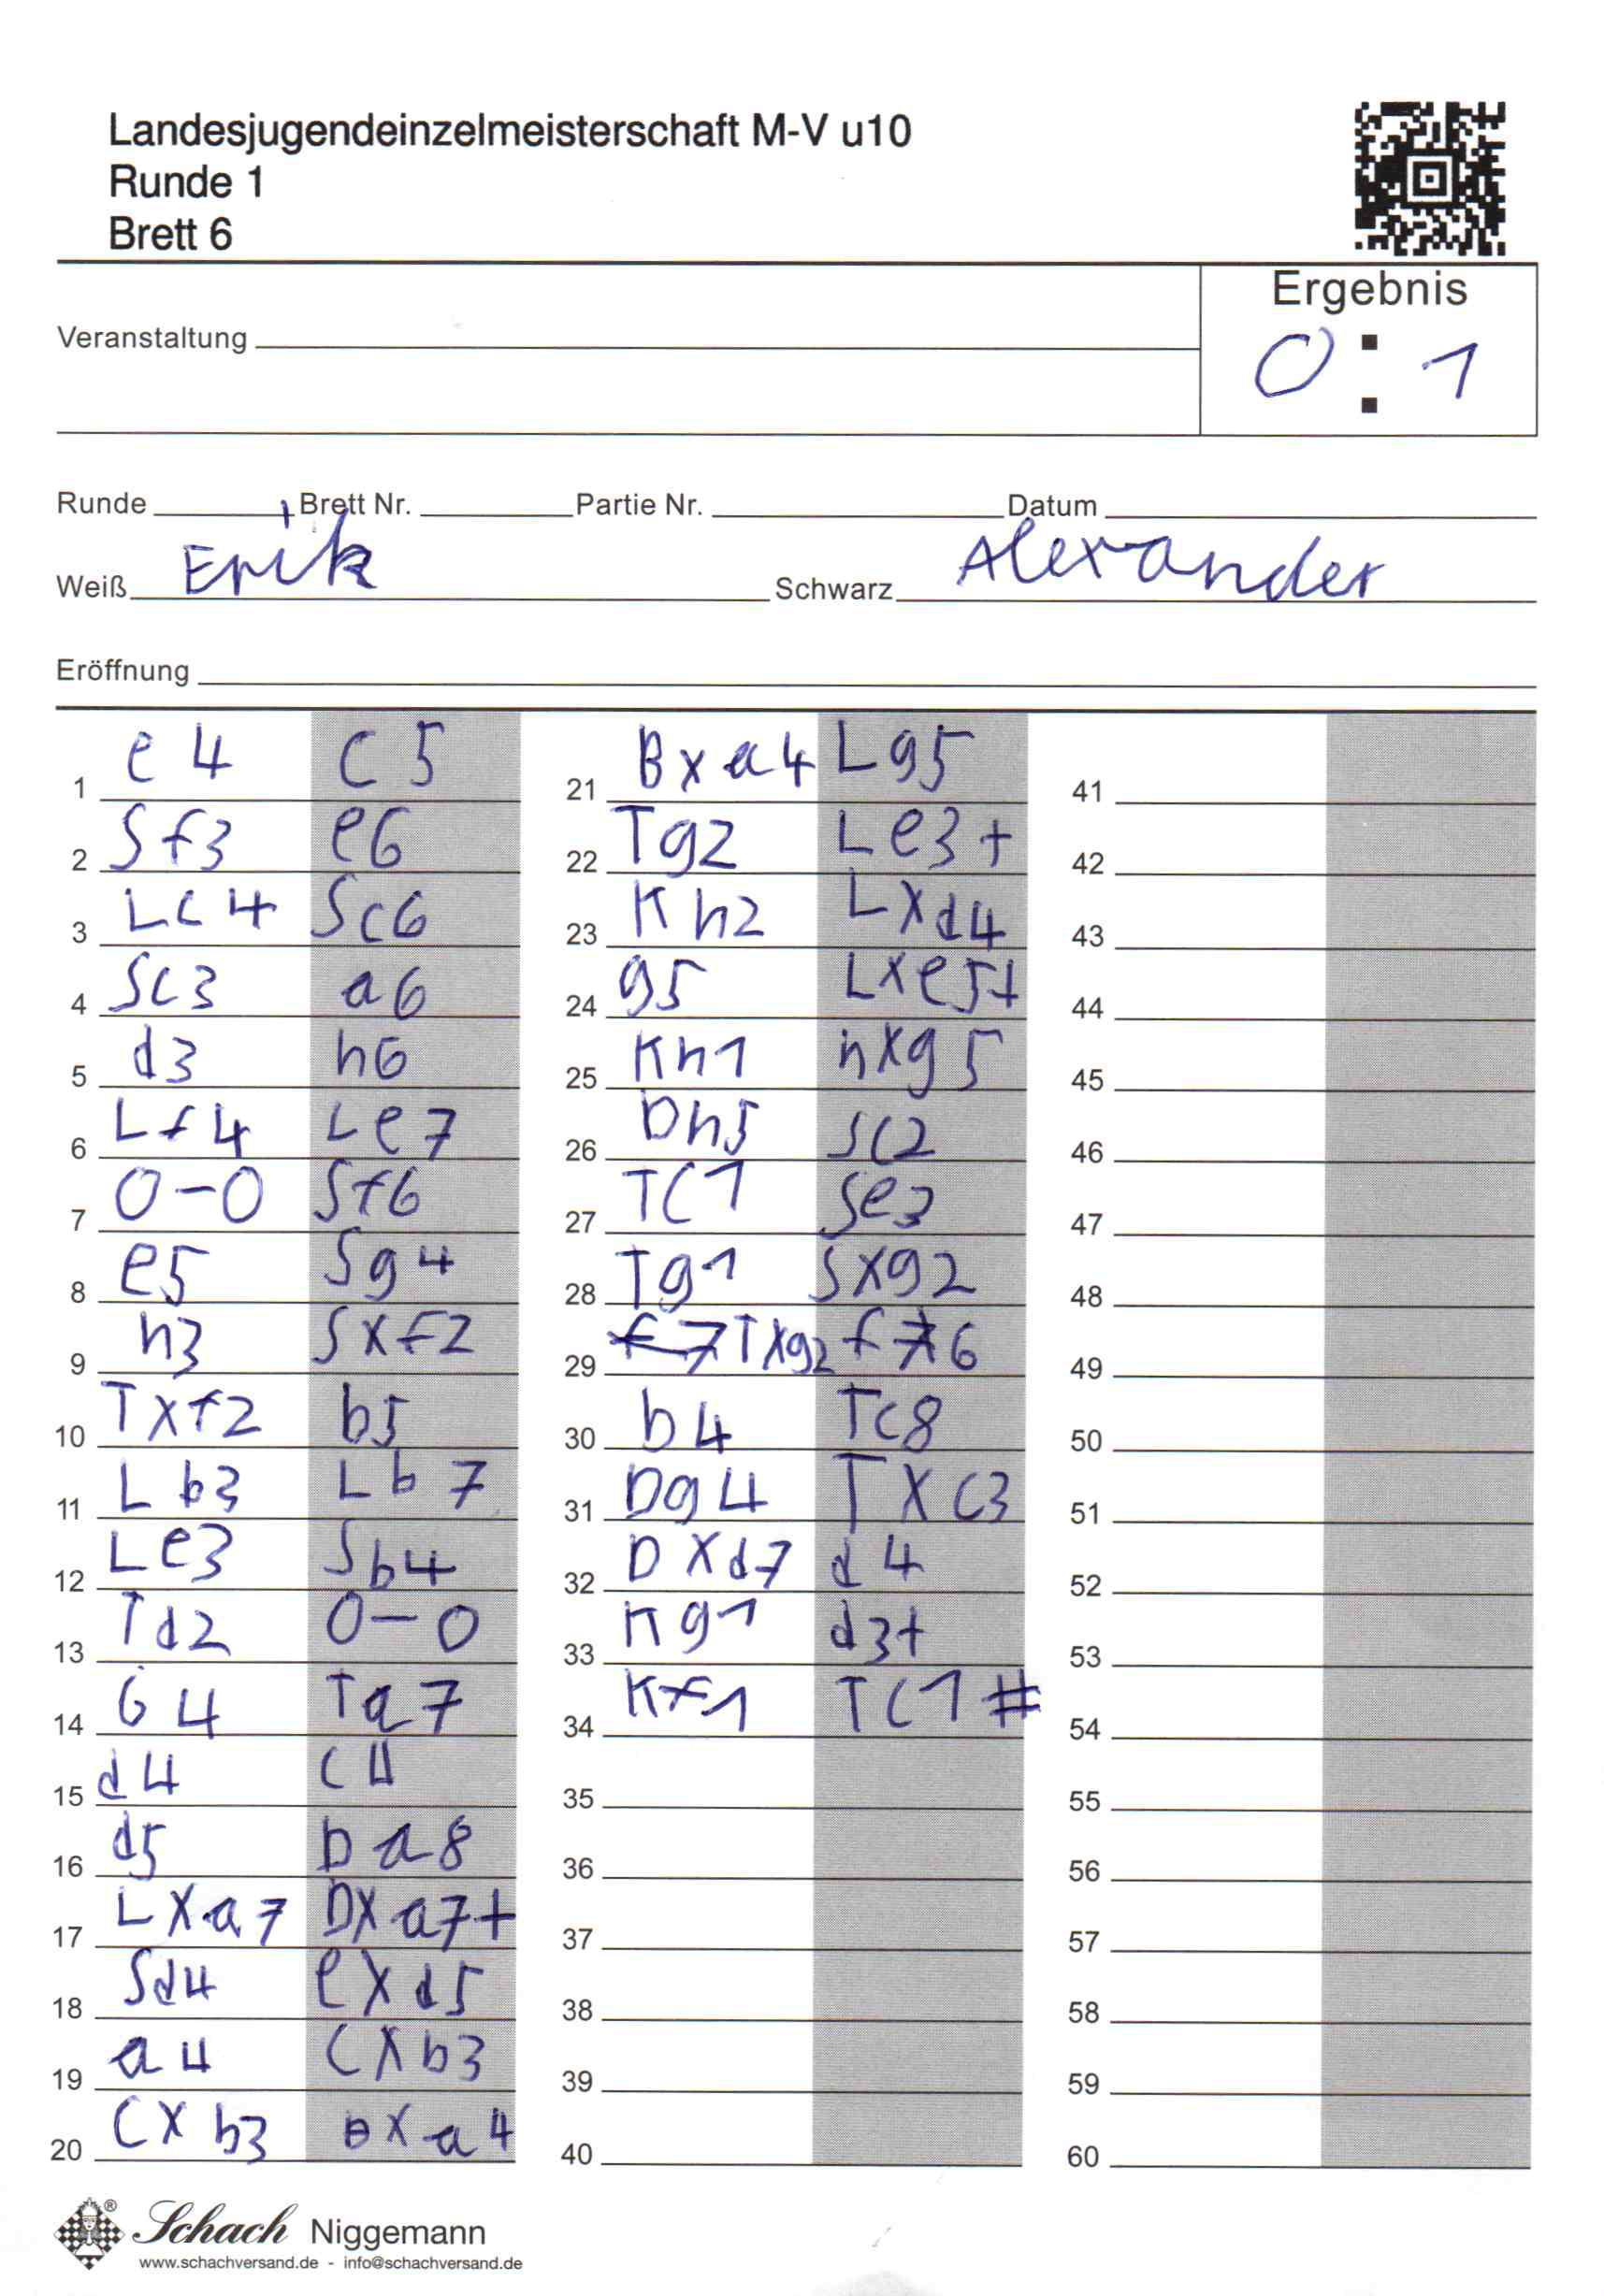 Landesjugendeinzelmeisterschaft M-V u10
Runde 1
Brett 6
Ergebnis
Veranstaltung
0 : 1
Runde Brett Nr. Partie Nr. Datum
Weiß Erik Schwarz Alexander
Eröffnung
1 e4 c5
2 Sf3 e6
3 Lc4 Sc6
4 Sc3 a6
5 d3 h6
6 Lf4 Le7
7 0-0 Sf6
8 e5 Sg4
9 h3 Sxf2
10 Txf2 b5
11 Lb3 Lb7
12 Le3 Sb4
13 Td2 0-0
14 G4 Ta7
15 d4 c4
16 d5 Da8
17 Lxa7 Dxa7+
18 Sd4 exd5
19 a4 cxb3
20 cxb3 Bxa4
21 Bxa4 Lg5
22 Tg2 Le3+
23 Kh2 Lxd4
24 g5 Lxe5+
25 Kh1 hxg5
26 Dh5 Sc2
27 Tc1 Se3
28 Tg1 Sxg2
29 Txg2 f6
30 b4 Tc8
31 Dg4 Txc3
32 Dxd7 d4
33 Kg1 d3+
34 Kf1 Tc1#
35
36
37
38
39
40
41
42
43
44
45
46
47
48
49
50
51
52
53
54
55
56
57
58
59
60
Schach Niggemann
www.schachversand.de - info@schachversand.de